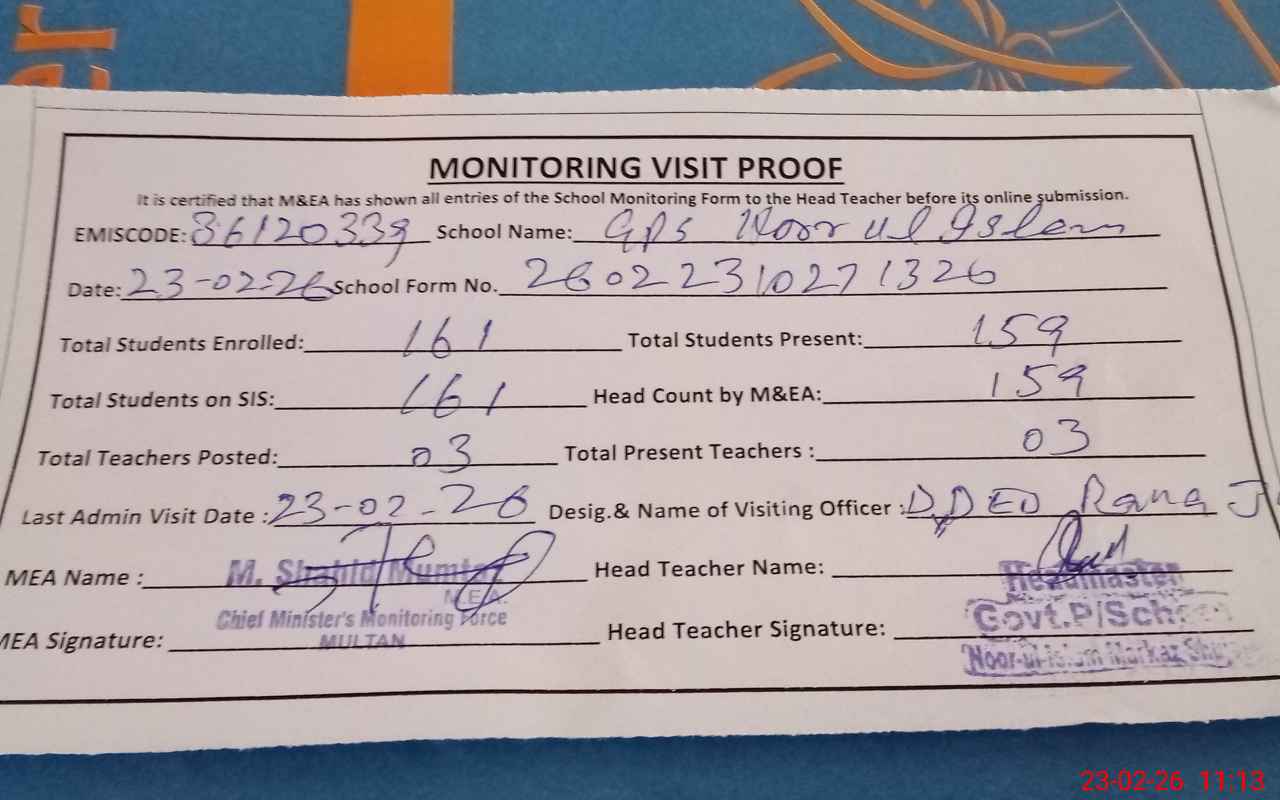 MONITORING VISIT PROOF
It is certified that M&EA has shown all entries of the School Monitoring Form to the Head Teacher before its online submission.
EMISCODE: 36120339 School Name: GPS Noor ul Islam
Date: 23-02-26 School Form No. 26022310271326
Total Students Enrolled: 161 Total Students Present: 159
Total Students on SIS: 161 Head Count by M&EA: 159
Total Teachers Posted: 03 Total Present Teachers : 03
Last Admin Visit Date : 23-02-26 Desig.& Name of Visiting Officer : DDEO Rana J
MEA Name : M. Shahid Mumtaz Head Teacher Name: Headmaster
M.E.A.
Chief Minister's Monitoring Force Govt.P/Sch
MEA Signature: MULTAN Head Teacher Signature:
Noor-ul-Islam Markaz
23-02-26 11:13